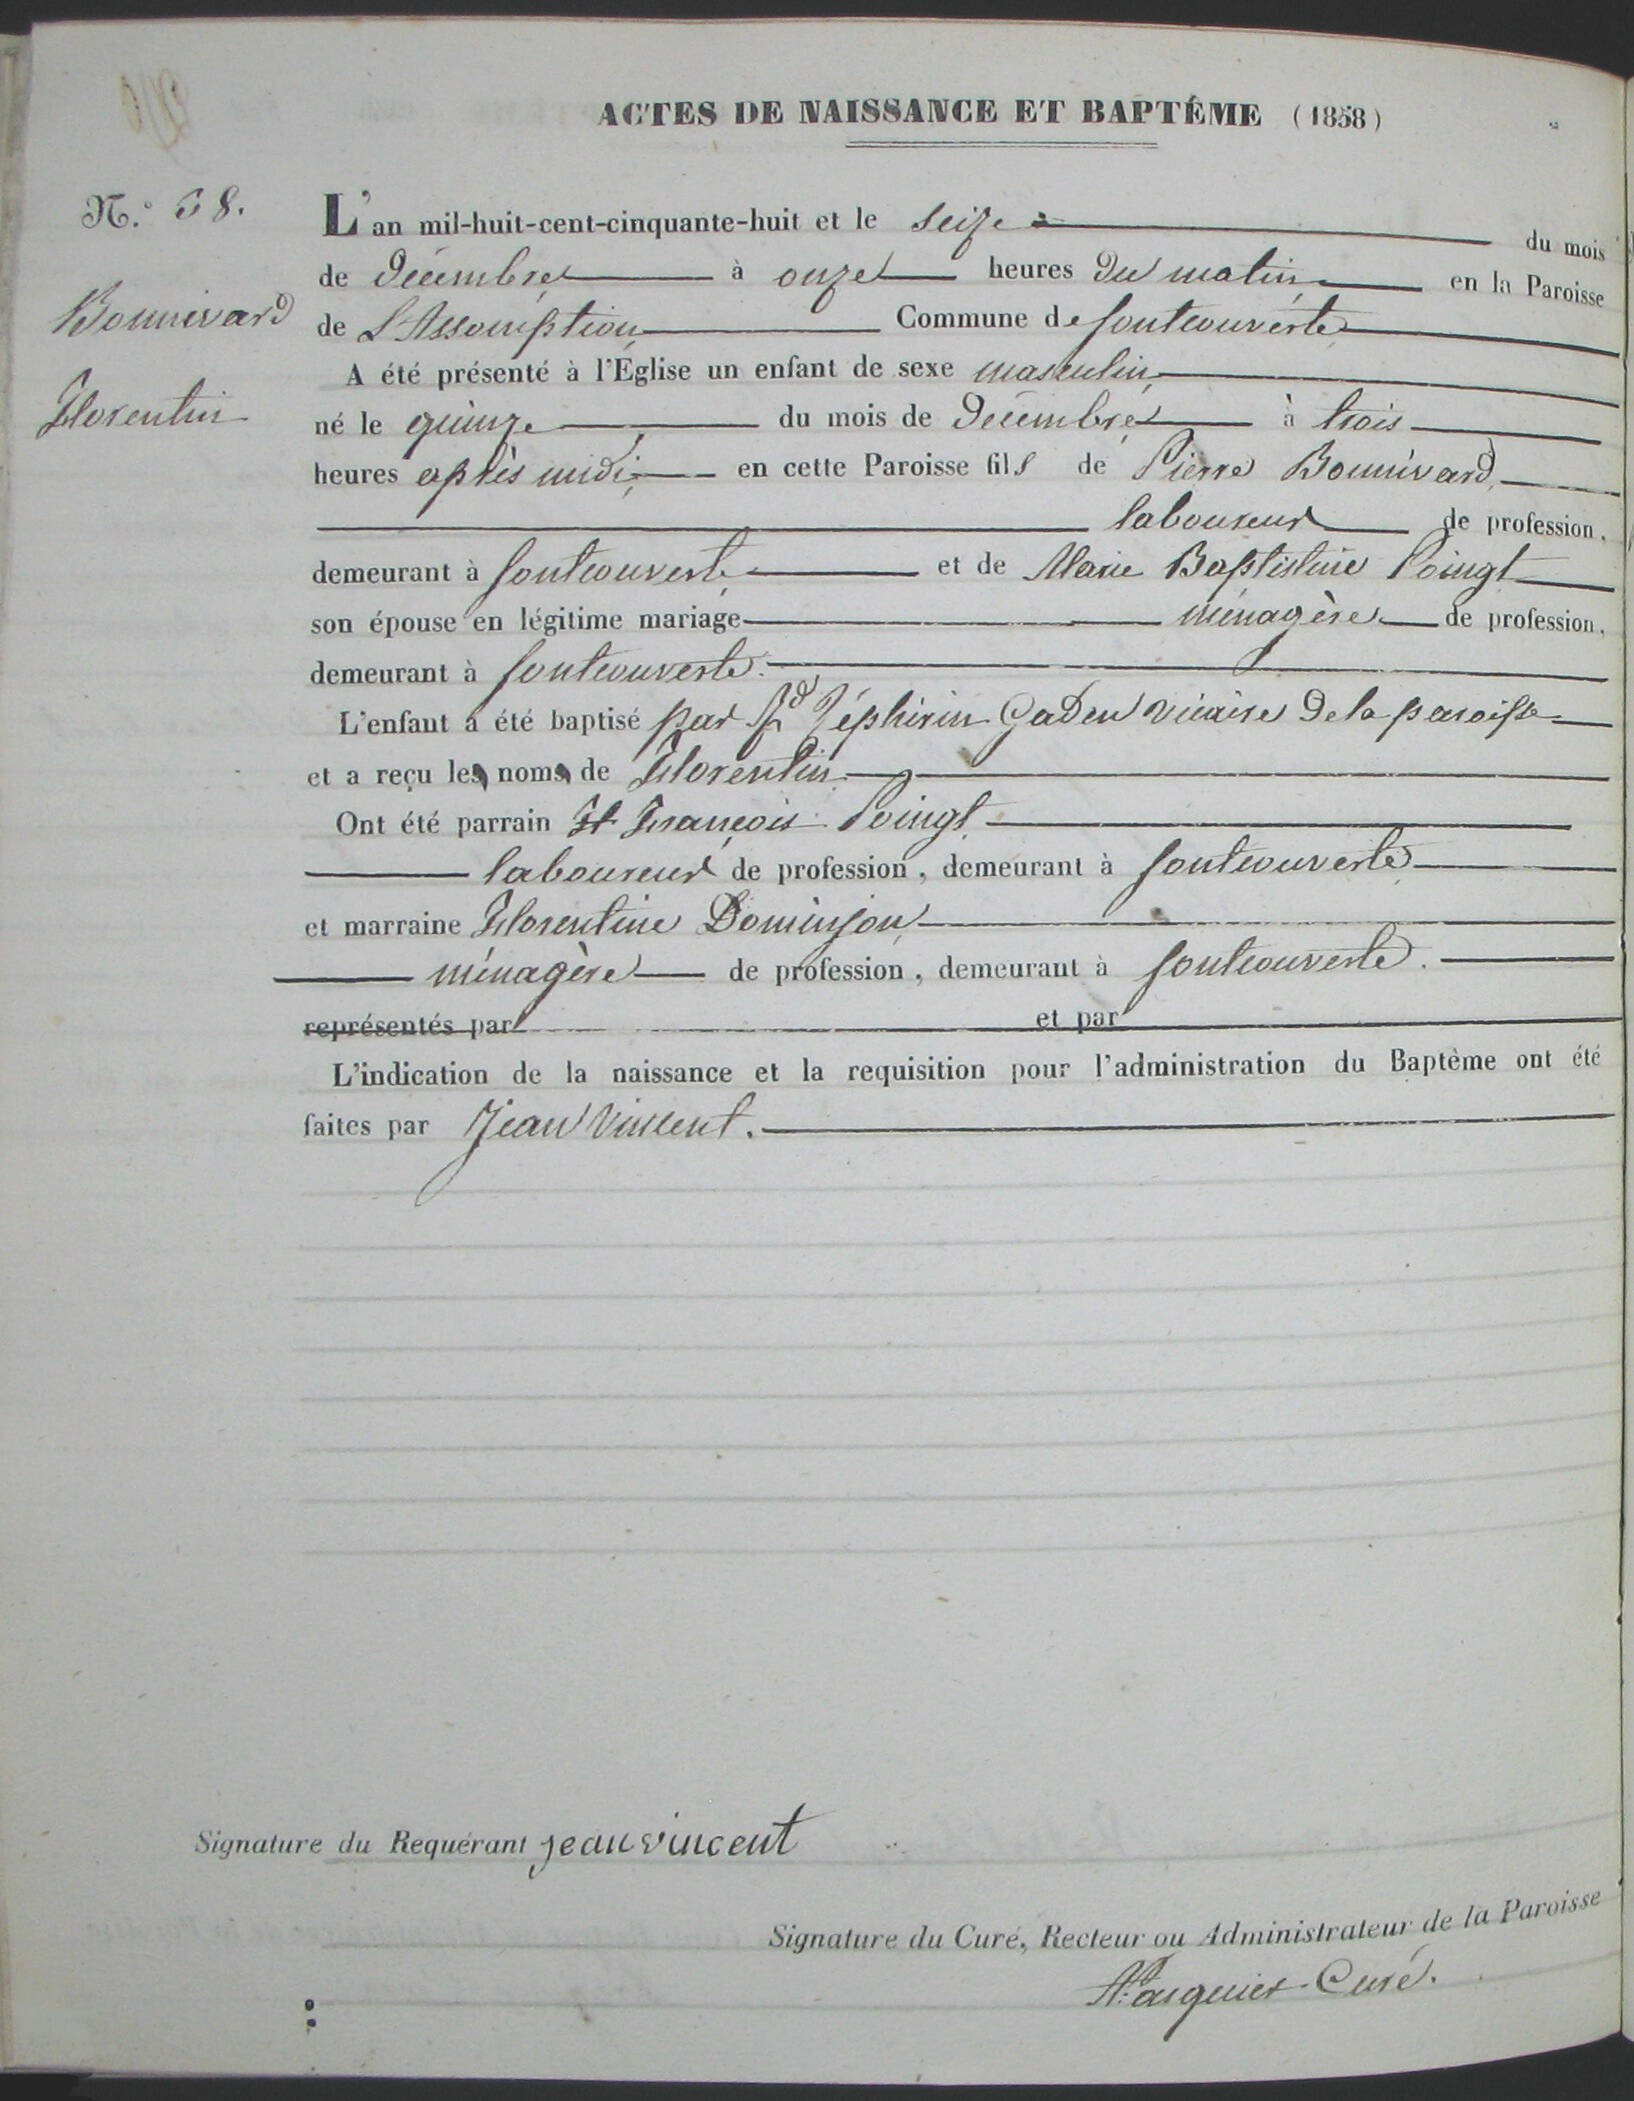 ACTES DE NAISSANCE ET BAPTÊME (1858)
N.° 68.
Bonnivard
Florentin
L'an mil-huit-cent-cinquante-huit et le seize du mois
de Décembre à onze heures du matin en la Paroisse
de L'Assomption Commune de fontcouverte
A été présenté à l'Église un enfant de sexe masculin
né le quinze du mois de Décembre à trois
heures après midi, en cette Paroisse fils de Pierre Bonnivard,
laboureur de profession,
demeurant à fontcouverte et de Marie Baptistine Poingt
son épouse en légitime mariage ménagère de profession,
demeurant à fontcouverte.
L'enfant a été baptisé par Rd Zéphirin Gaden vicaire de la paroisse
et a reçu les noms de Florentin
Ont été parrain François Poingt
laboureur de profession, demeurant à fontcouverte
et marraine Florentine Dominjon
ménagère de profession, demeurant à fontcouverte.
représentés par et par
L'indication de la naissance et la requisition pour l'administration du Baptème ont été
faites par Jean Vincent.
Signature du Requérant jean vincent
Signature du Curé, Recteur ou Administrateur de la Paroisse
Curé.